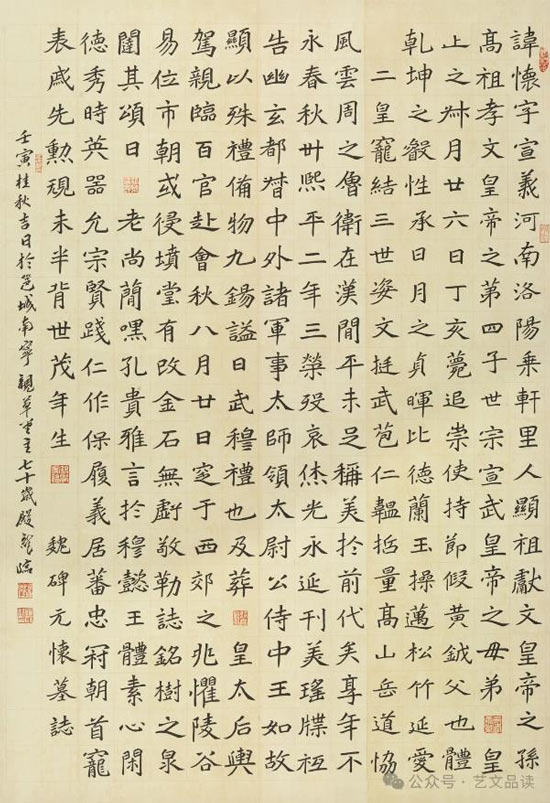 諱懷字宣義河南洛陽乘軒里人顯祖獻文皇帝之孫
高祖孝文皇帝之第四子世宗宣武皇帝之母弟 皇
上之叔月廿六日丁亥薨追崇使持節假黃鉞父也體
乾坤之叡性承日月之貞暉比德蘭玉操邁松竹延愛
二皇寵結三世姿文挺武苞仁韞括量高山岳道協
風雲周之魯衛在漢閒平未足稱美於前代矣享年不
永春秋卅熙平二年三榮歿哀烋光永延刊美瑤牒袒
告幽玄都督中外諸軍事太師領太尉公侍中王如故
顯以殊禮備物九錫謚曰武穆禮也及葬 皇太后輿
駕親臨百官赴會秋八月廿日窆于西郊之兆懼陵谷
易位市朝或侵墳堂有改金石無虧敬勒誌銘樹之泉
闥其頌曰 老尚簡嘿孔貴雅言於穆懿王體素心閑
德秀時英器允宗賢踐仁作保履義居蕃忠冠朝首寵
表戚先勳規未半背世茂年生 魏碑元懷墓誌
壬寅桂秋吉日於邕城南寧觀草堂主七十歲殷臨
公众号·艺文品读